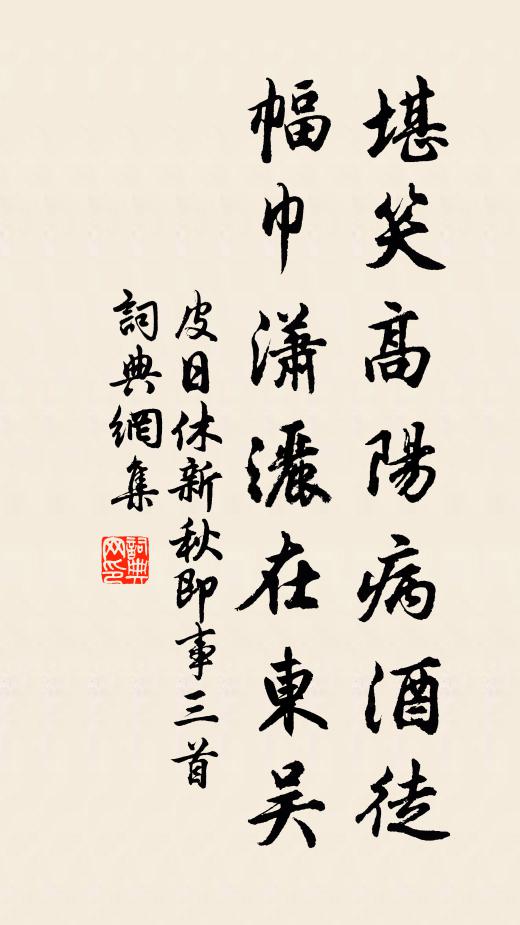 堪笑高陽病酒徒
幅巾瀟灑在東吴
皮日休新秋即事三首
詞典網集
詞典
网印